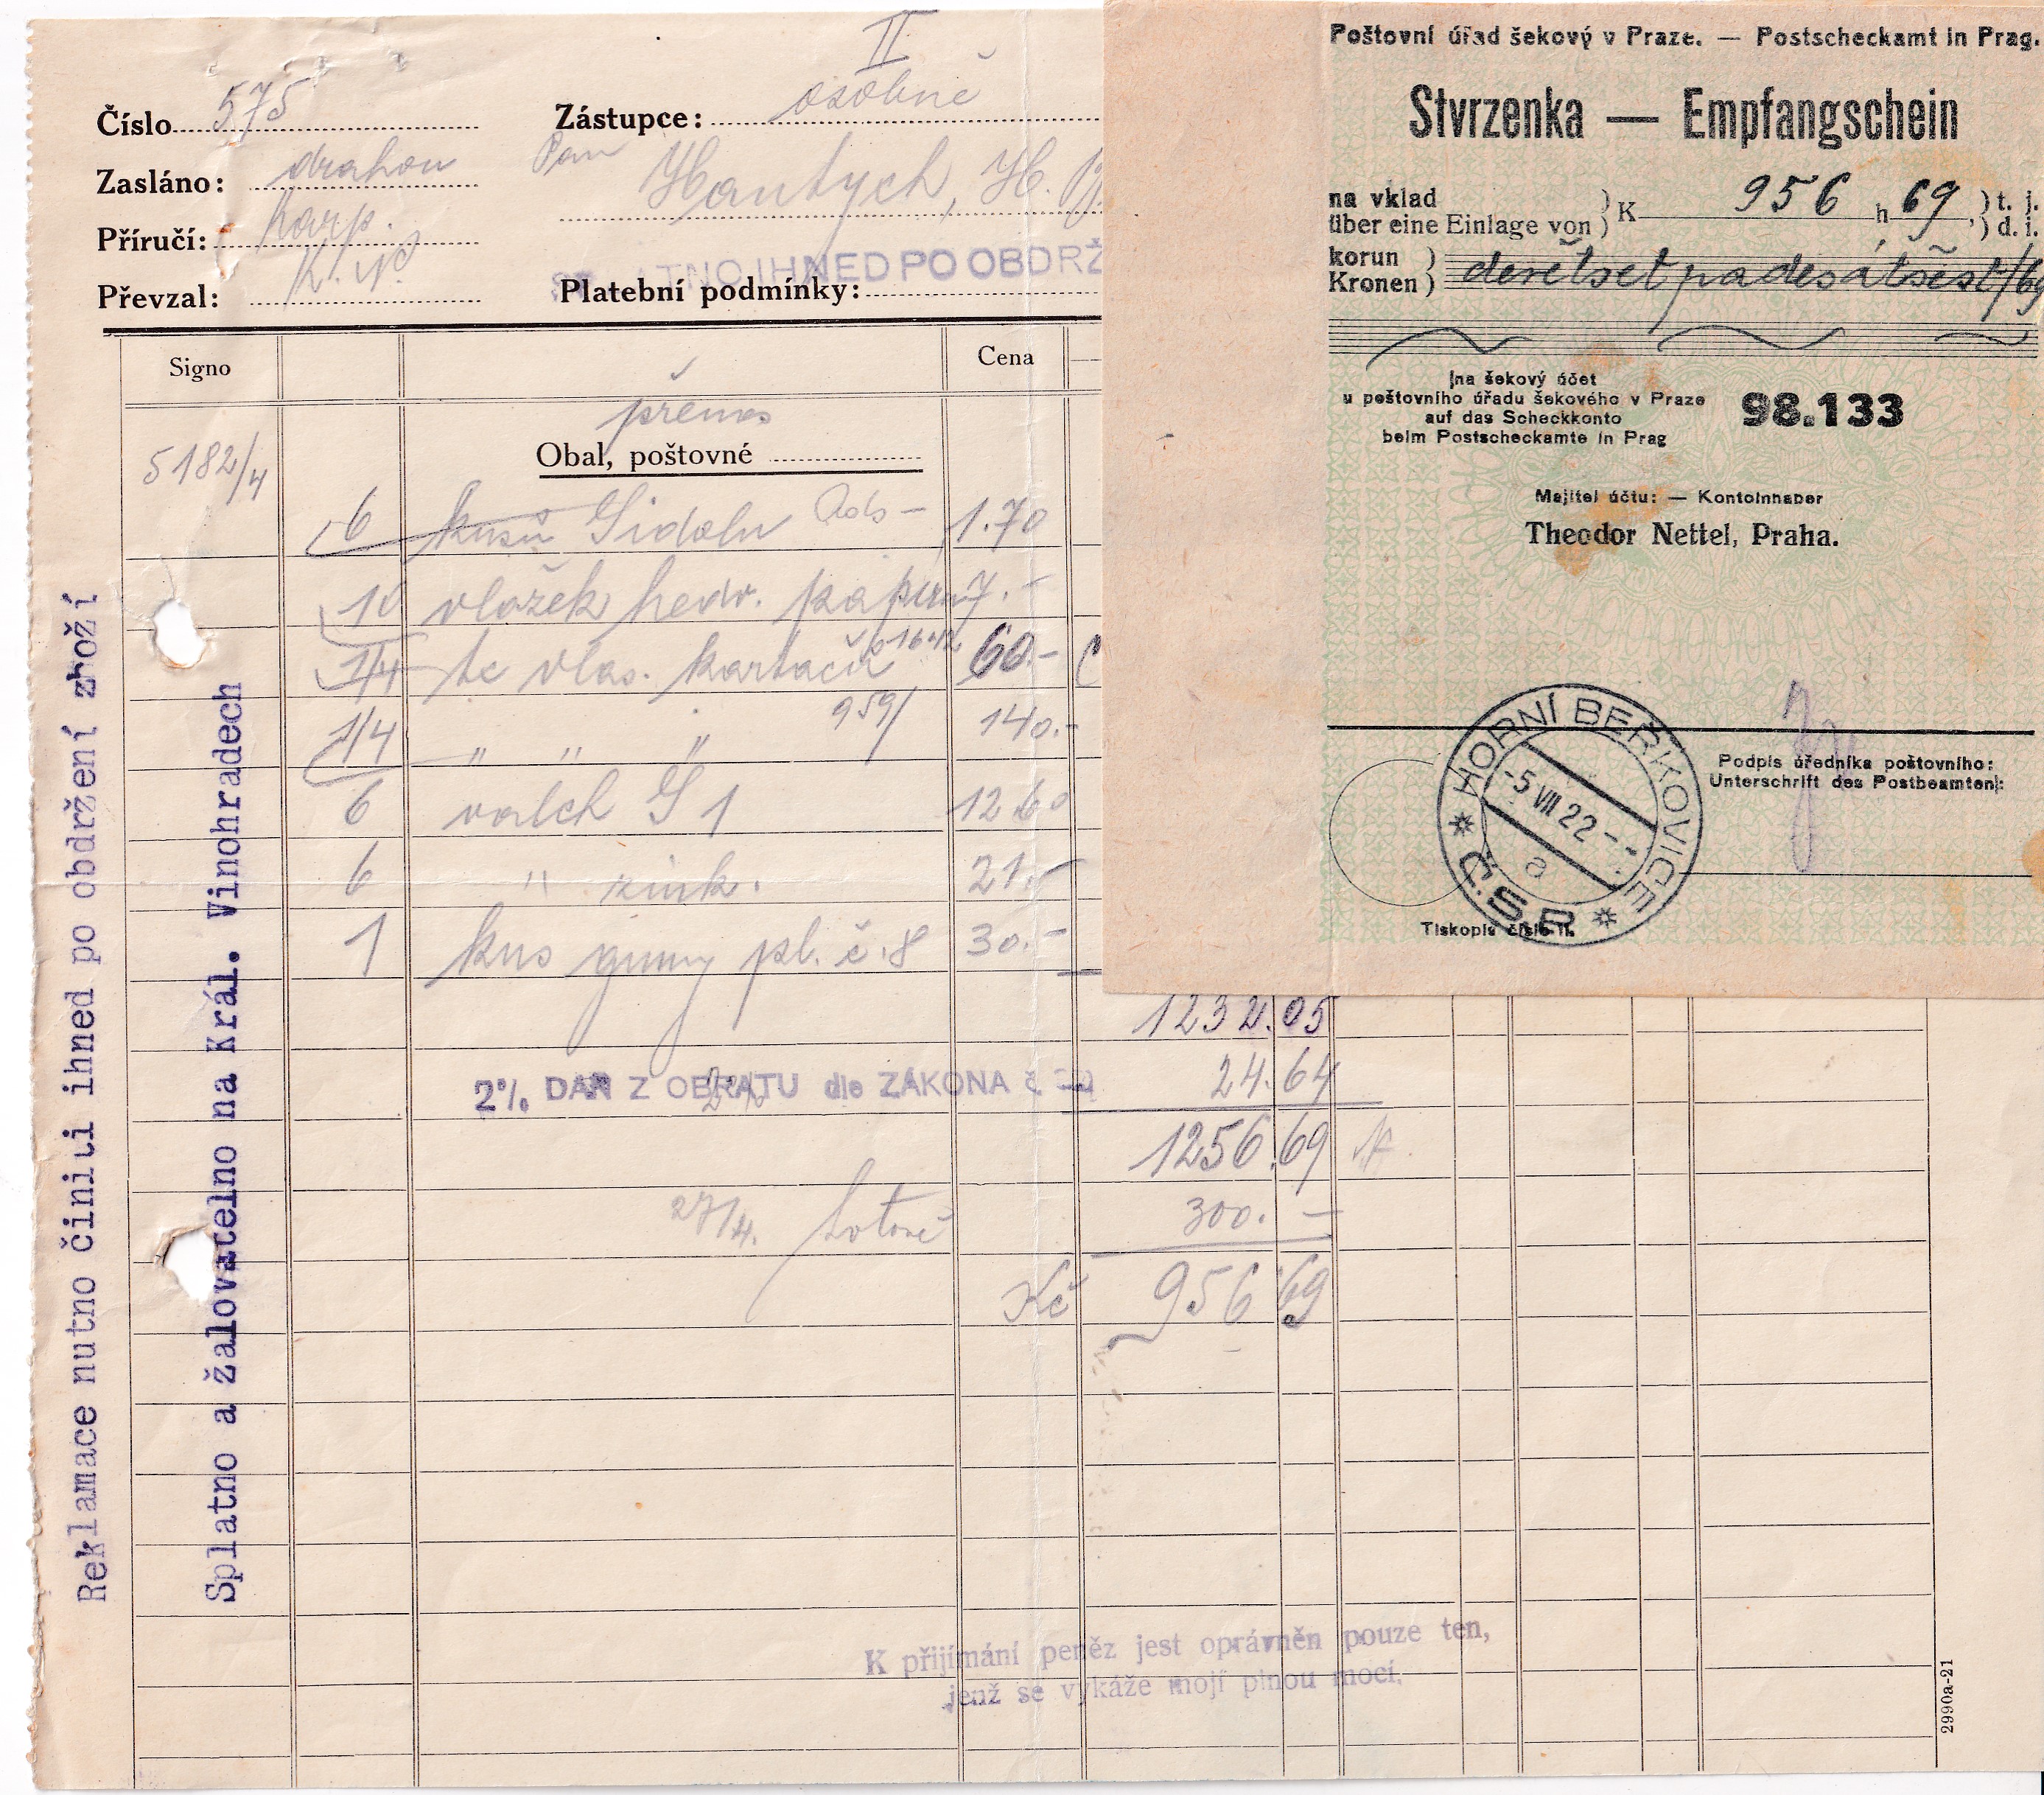 II
Číslo 575
Zástupce: osobně
Zasláno: drahou
Pan Hantych, H.
Příručí:
Převzal:
TNO IHNED PO OBDRŽ
Platební podmínky:
Signo
Cena
přenos
Obal, poštovné
5182/4
6 kusů Sidolu 1.70
10 vložek hedv. papíru 7.-
1/4 tc vlas. kartáčů 60.-
1/4 " " " 959/ 140.-
6 valch S 1 12 60
6 " zink. 21.-
1 kus gumy pl. č. 8 30.-
1232.05
2% DAŇ Z OBRATU dle ZÁKONA č 24.64
1256.69
27/4. hotově 300. —
Kč 956 69
K přijímání peněz jest oprávněn pouze ten,
jenž se vykáže mojí plnou mocí.
2990a-21
Reklamace nutno činiti ihned po obdržení zboží
Splatno a žalovatelno na Král. Vinohradech
Poštovní úřad šekový v Praze. — Postscheckamt in Prag.
Stvrzenka — Empfangschein
na vklad
über eine Einlage von } K 956 h 69, } t. j. d. i.
korun
Kronen } devětset padesátšest/69
na šekový účet
u poštovního úřadu šekového v Praze
auf das Scheckkonto
beim Postscheckamte in Prag
98.133
Majitel účtu: — Kontoinhaber
Theodor Nettel, Praha.
HORNÍ BEŘKOVICE
-5 VIII 22 --
a
Č.S.R.
Podpis úředníka poštovního:
Unterschrift des Postbeamten:
Tiskopis číslo